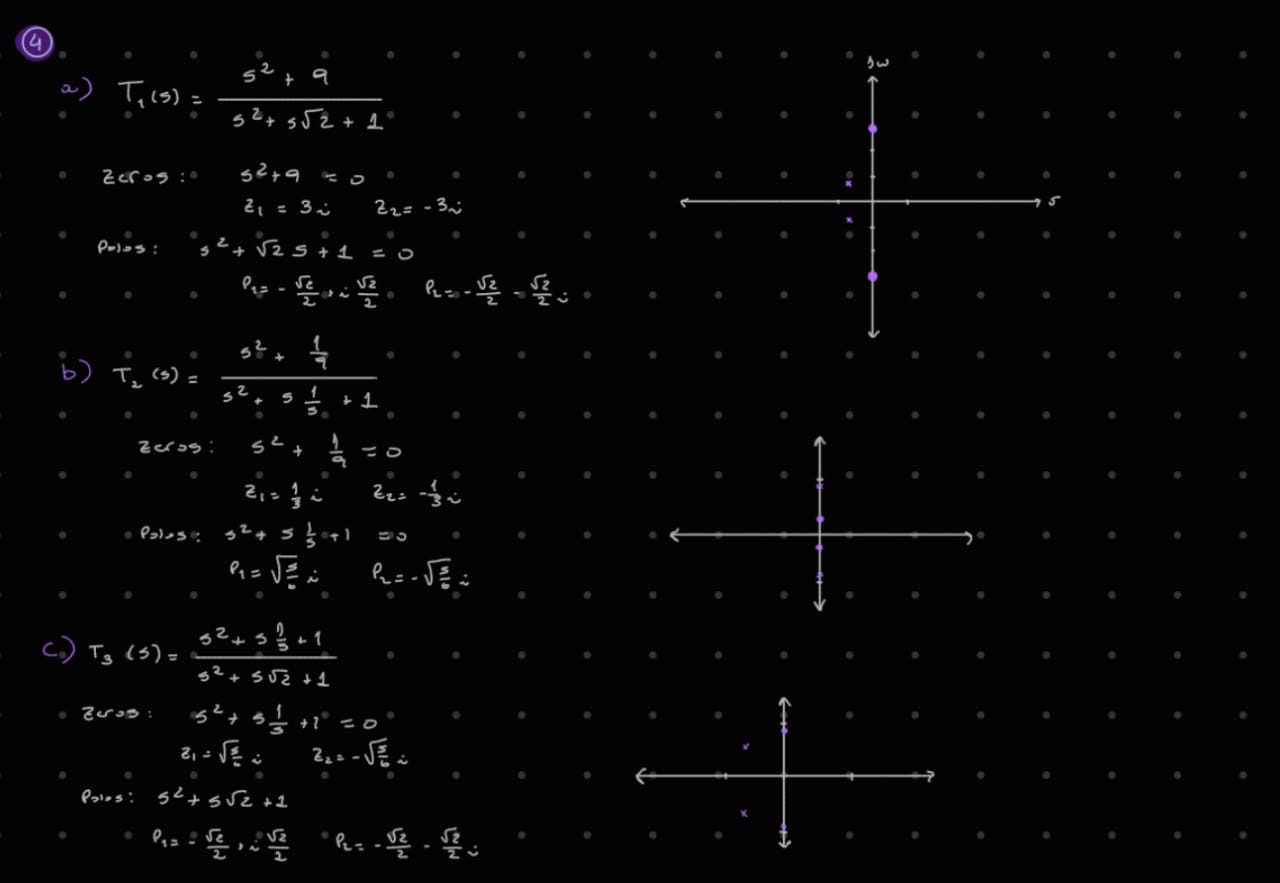 4
a) T₁(s) = (s² + 9) / (s² + s√2 + 1)
Zeros: s² + 9 = 0
Z₁ = 3i Z₂ = -3i
Polos: s² + √2 s + 1 = 0
P₁ = -√2/2 + i √2/2 P₂ = -√2/2 - √2/2 i
b) T₂(s) = (s² + 1/9) / (s² + s 1/5 + 1)
Zeros: s² + 1/9 = 0
Z₁ = 1/3 i Z₂ = -1/3 i
Polos: s² + s 1/5 + 1 = 0
P₁ = √(5/6) i P₂ = -√(5/6) i
c) T₃(s) = (s² + s 1/5 + 1) / (s² + s√2 + 1)
Zeros: s² + s 1/5 + 1 = 0
Z₁ = √(5/6) i Z₂ = -√(5/6) i
Polos: s² + s√2 + 1
P₁ = -√2/2 + i √2/2 P₂ = -√2/2 - √2/2 i
jw
σ